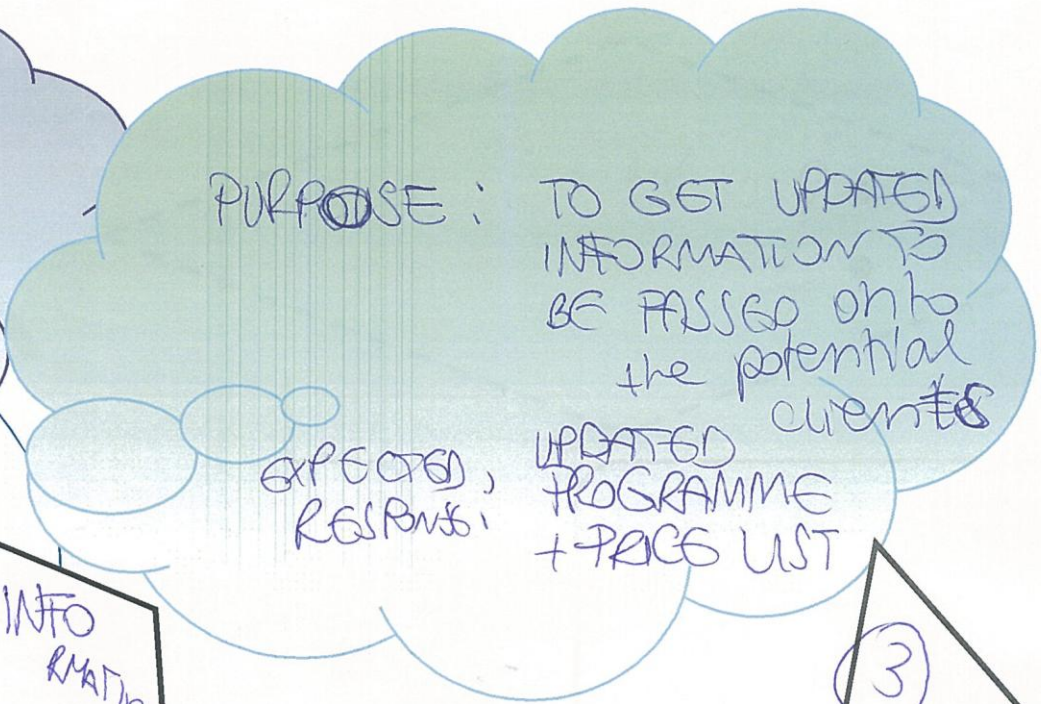 PURPOSE : TO GET UPDATED
INFORMATION TO
BE PASSED onto
the potential
clients
EXPECTED UPDATED
RESPONSE: PROGRAMME
+ PRICE LIST
INFO
RMATIO
3